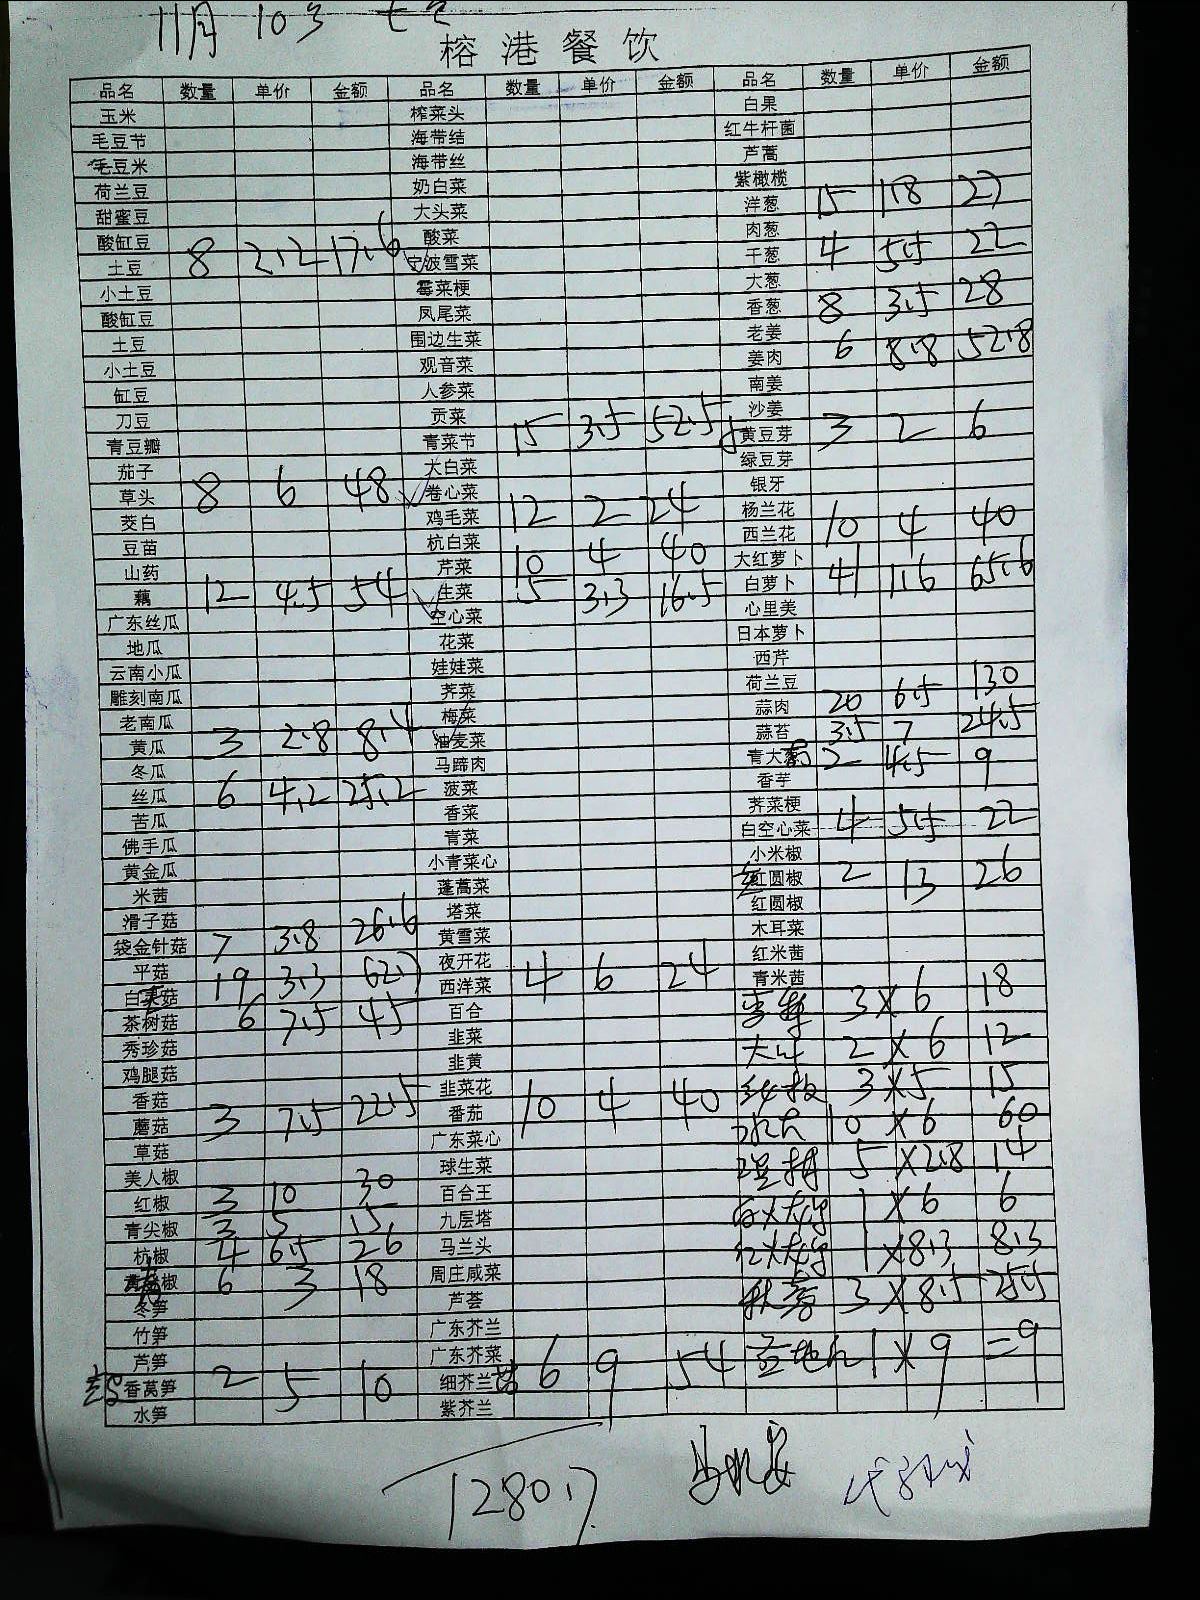 11月10号
榕港餐饮
品名 数量 单价 金额 品名 数量 单价 金额 品名 数量 单价 金额
玉米
毛豆节
毛豆米
荷兰豆
甜蜜豆
酸缸豆
土豆 8 2.2 17.6
小土豆
酸缸豆
土豆
小土豆
缸豆
刀豆
青豆瓣
茄子
草头 8 6 48
茭白
豆苗
山药
藕 12 4.5 54
广东丝瓜
地瓜
云南小瓜
雕刻南瓜
老南瓜
黄瓜 3 2.8 8.4
冬瓜
丝瓜 6 4.2 25.2
苦瓜
佛手瓜
黄金瓜
米茜
滑子菇
袋金针菇 7 3.8 26.6
平菇
白灵菇 19 3.3 62.7
茶树菇 6 7.5 45
秀珍菇
鸡腿菇
香菇
蘑菇 3 7.5 22.5
草菇
美人椒
红椒 3 10 30
青尖椒 3 5 15
杭椒 4 6.5 26
椒 6 3 18
冬笋
竹笋
芦笋
香莴笋 2 5 10
水笋
榨菜头
海带结
海带丝
奶白菜
大头菜
酸菜
宁波雪菜
霉菜梗
凤尾菜
围边生菜
观音菜
人参菜
贡菜
青菜节 15 3.5 52.5
大白菜
卷心菜
鸡毛菜 12 2 24
杭白菜
芹菜 10 4 40
生菜 5 3.3 16.5
空心菜
花菜
娃娃菜
荠菜
梅菜
油麦菜
马蹄肉
菠菜
香菜
青菜
小青菜心
蓬蒿菜
塔菜
黄雪菜
夜开花
西洋菜 4 6 24
百合
韭菜
韭黄
韭菜花
番茄 10 4 40
广东菜心
球生菜
百合王
九层塔
马兰头
周庄咸菜
芦荟
广东芥兰
广东芥菜
细芥兰苗 6 9 54
紫芥兰
白果
红牛杆菌
芦蒿
紫橄榄
洋葱 15 1.8 27
肉葱
干葱 4 5.5 22
大葱
香葱 8 3.5 28
老姜
姜肉 6 8.8 52.8
南姜
沙姜
黄豆芽 3 2 6
绿豆芽
银牙
杨兰花
西兰花 10 4 40
大红萝卜
白萝卜 41 1.6 65.6
心里美
日本萝卜
西芹
荷兰豆
蒜肉 20 6.5 130
蒜苔 3.5 7 24.5
青大蒜 2 4.5 9
香芋
荠菜梗
白空心菜 4 5.5 22
小米椒
红圆椒 2 13 26
红圆椒
木耳菜
红米茜
青米茜
3×6 18
2×6 12
3×5 15
10×6 60
5×2.8 14
白火龙果 1×6 6
红火龙果 1×8.3 8.3
3×8.5 25.5
1×9=9
1280.7